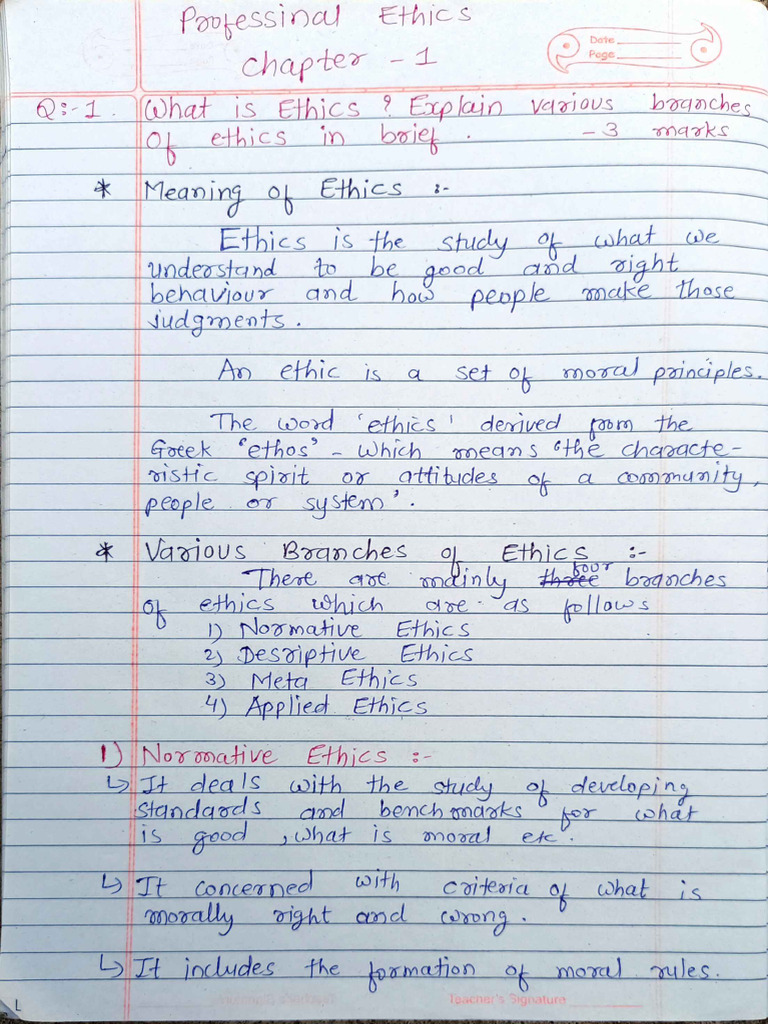 Professinal Ethics
Date
Page
Chapter - 1
Q:-1. What is Ethics ? Explain various branches
of ethics in brief. - 3 marks
* Meaning of Ethics :-
Ethics is the study of what we
understand to be good and right
behaviour and how people make those
judgments.
An ethic is a set of moral principles.
The word 'ethics' derived from the
Greek 'ethos' - which means 'the characte-
ristic spirit or attitudes of a community,
people or system'.
* Various Branches of Ethics :-
There are mainly three four branches
of ethics which are as follows
1) Normative Ethics
2) Desriptive Ethics
3) Meta Ethics
4) Applied Ethics
1) Normative Ethics :-
↳ It deals with the study of developing
standards and benchmarks for what
is good , what is moral etc.
↳ It concerned with criteria of what is
morally right and wrong.
↳ It includes the formation of moral rules.
L
Teacher's Signature